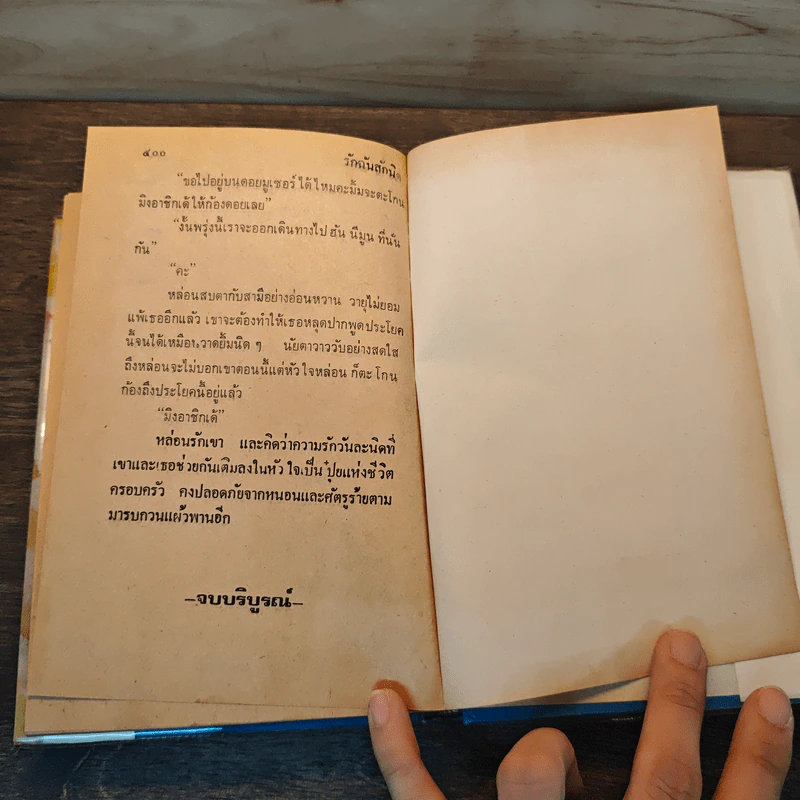 ๔๐๐
รักฉันสักนิด
“ขอไปอยู่บนดอยมูเซอร์ได้ไหมคะมั้มจะตะโกน
มิงอาชิกเด้ให้ก้องดอยเลย”
“งั้นพรุ่งนี้เราจะออกเดินทางไป ฮัน นีมูน ที่นั่น
กัน”
“คะ”
หล่อนสบตากับสามีอย่างอ่อนหวาน วายุไม่ยอม
แพ้เธออีกแล้ว เขาจะต้องทำให้เธอหลุดปากพูดประโยค
นี้จนได้เหมือนวาดยิ้มนิด ๆ นัยตาวาววับอย่างสดใส
ถึงหล่อนจะไม่บอกเขาตอนนี้แต่หัวใจหล่อน ก็ตะโกน
ก้องถึงประโยคนี้อยู่แล้ว
“มิงอาชิกเด้”
หล่อนรักเขา และคิดว่าความรักวันละนิดที่
เขาและเธอช่วยกันเติมลงในหัวใจเป็นปุ๋ยแห่งชีวิต
ครอบครัว คงปลอดภัยจากหนอนและศัตรูร้ายตาม
มารบกวนแผ้วพานอีก
–จบบริบูรณ์–